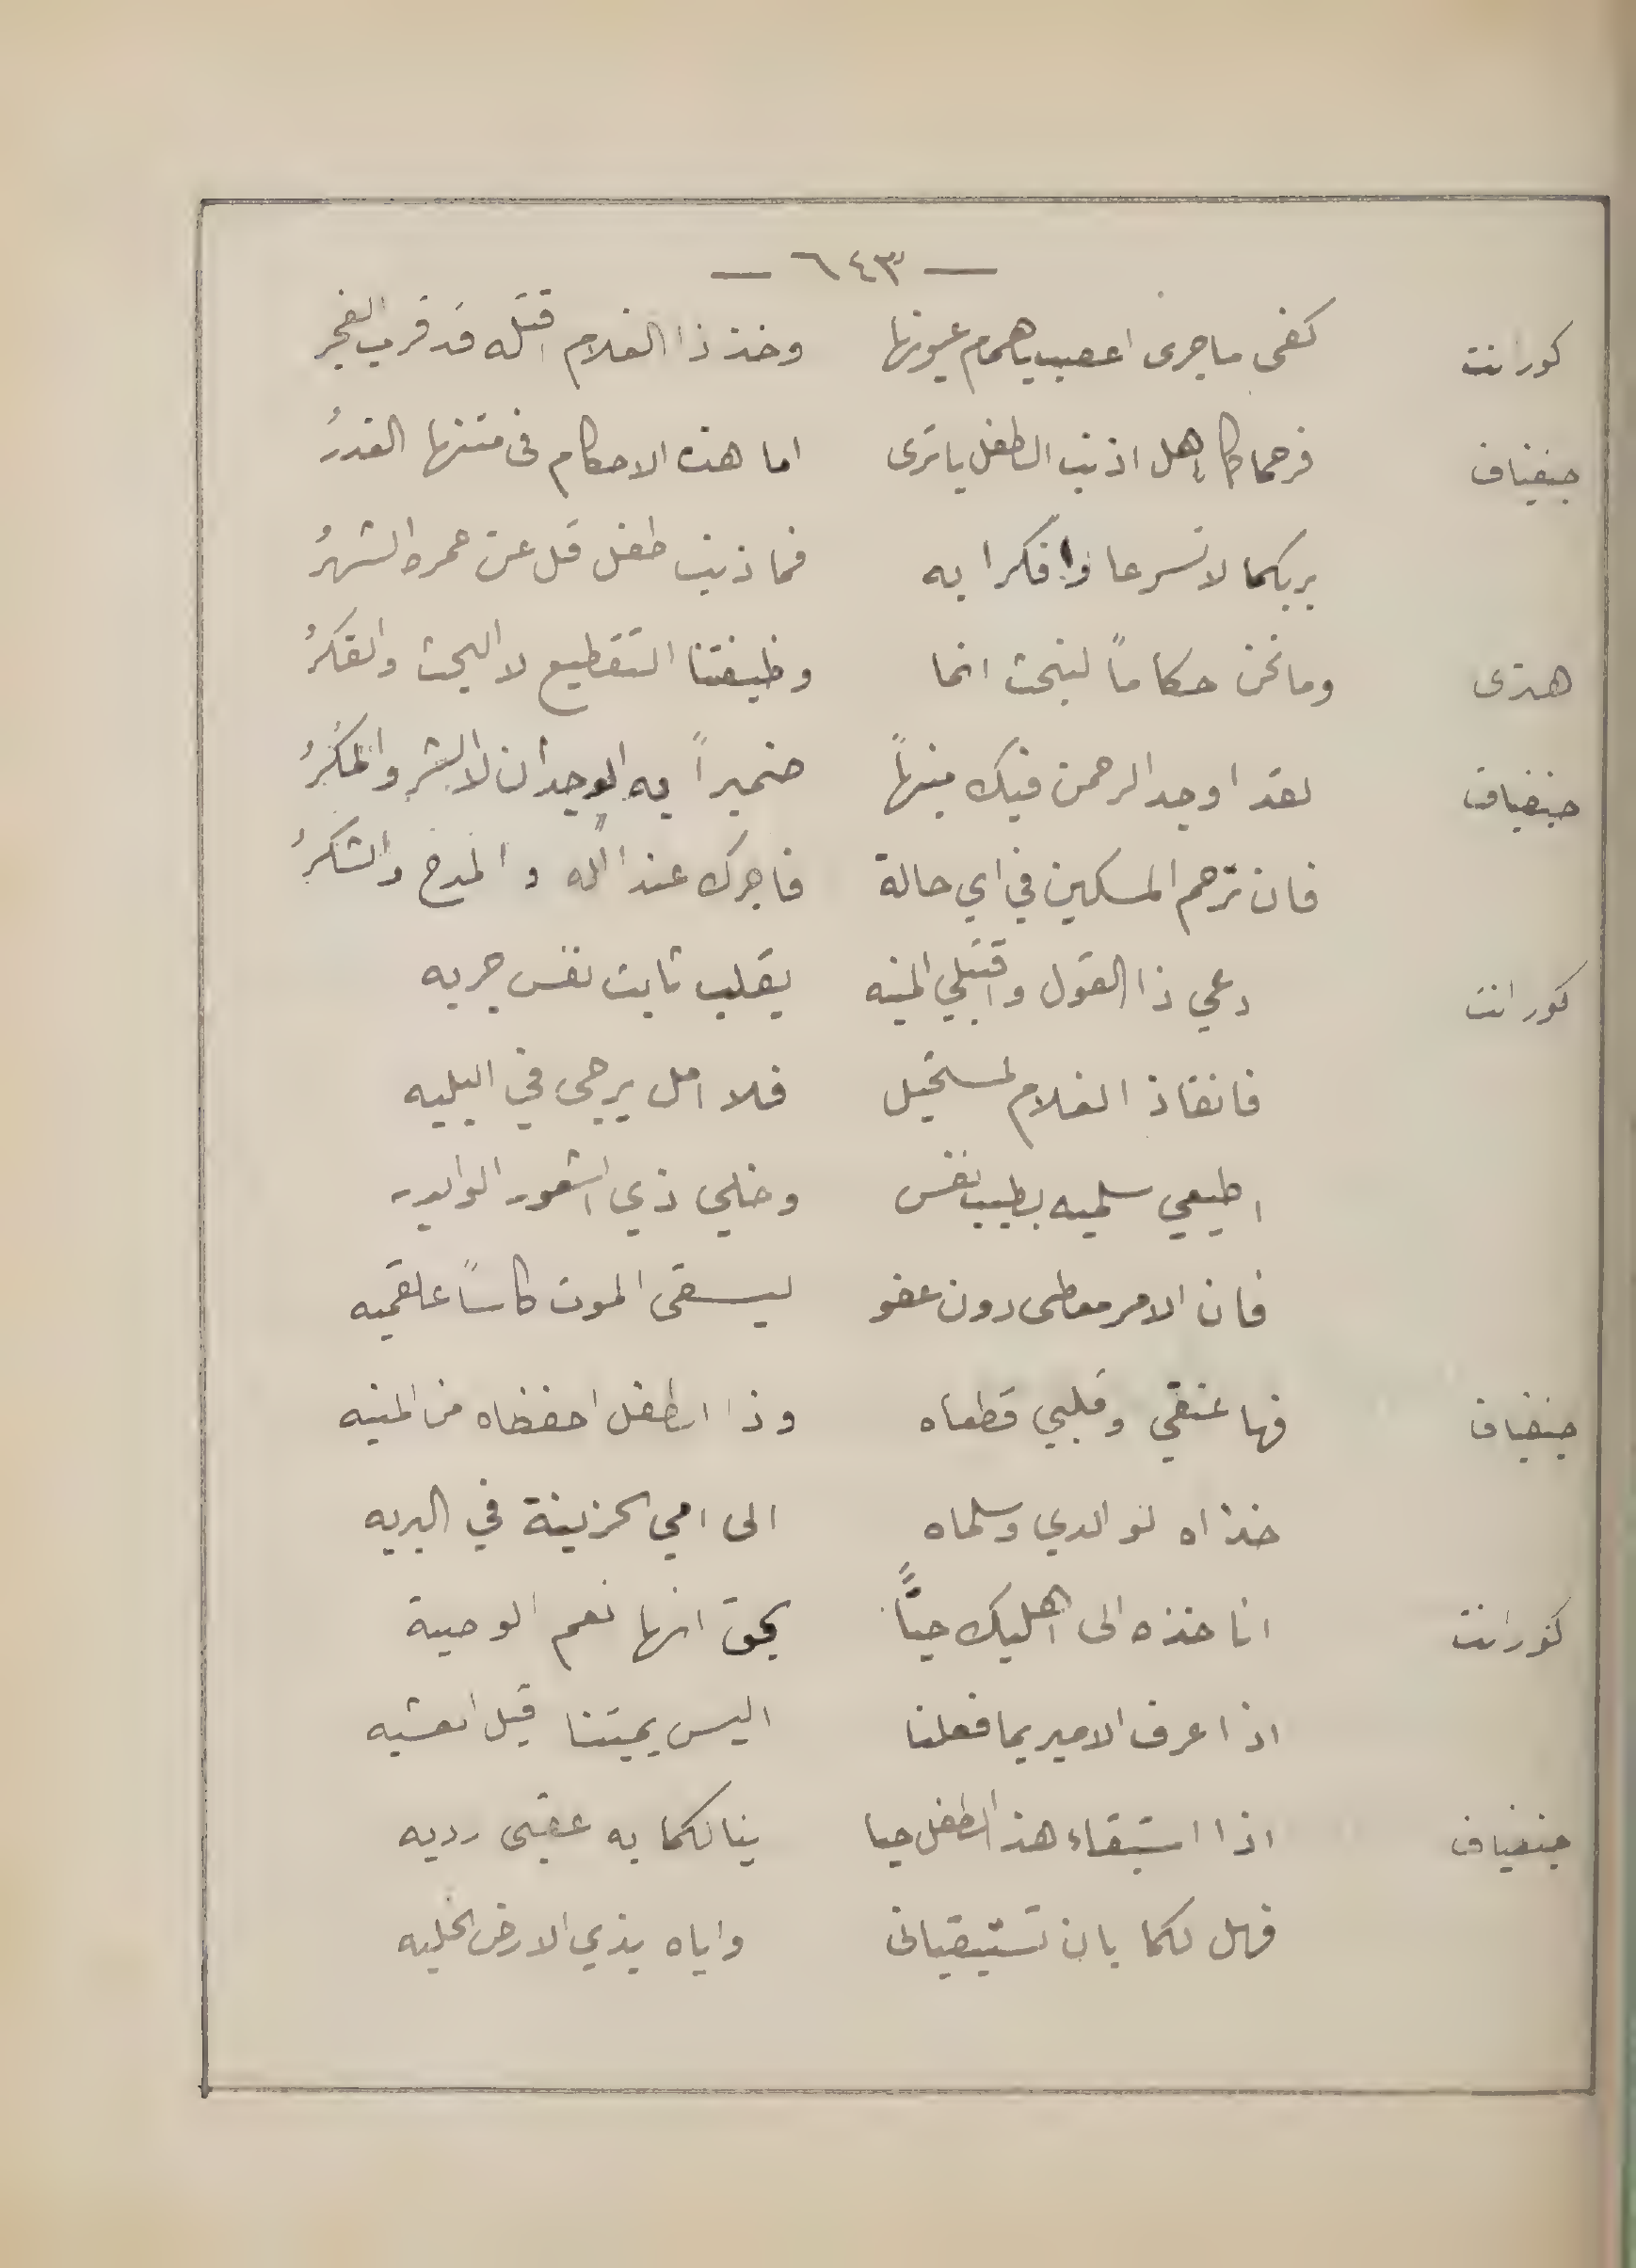 — ٦٤٣ —
كورانت كفى ما جرى اعصب ياهمام عيونها وخذ ذا الغلام اقتله قد قرب الفجرُ
جنفياف فرحماكما هل اذنب الطفل يا ترى اما هذه الاحكام في متنها الغدرُ
بربكما لا تسرعا وافكرا به فما ذنب طفل قل عن عمره الشهرُ
هنرى وما نحن حكاماً لنبحث انما وظيفتنا التقطيع لا البحث والفكرُ
جنفياف لقد اوجد الرحمن فيك منبهاً ضميراً به الوجدان لا الشر والمكرُ
فان ترحم المسكين في اي حالة فاجرك عند الله والمدح والشكرُ
كورانت دعي ذا القول واقتبلي المنيه بقلب ثابت نفس جريه
فانقاذ الغلام لمستحيل فلا امل يرجى في البليه
اطيعي سلميه بطيب نفس وخلي ذي الشعور الوالديه
فان الامر معطى دون عفو ليسقى الموت كاساً علقميه
جنفياف فها عنقي وقلبي قطعاه وذا الطفل احفظاه من المنيه
خذاه لوالدي وسلماه الى امي الحزينة في البريه
كورانت انا خذه الى اهليك حيًّا بحق انها نعم الوصية
اذا عرف الامير بما فعلنا اليس يميتنا قبل العشيه
جنفياف اذا استبقاء هذ الطفل حيا ينالكما به عقبى رديه
فهل لكما بان تستبقيانى واياه بذي الارض الخليه